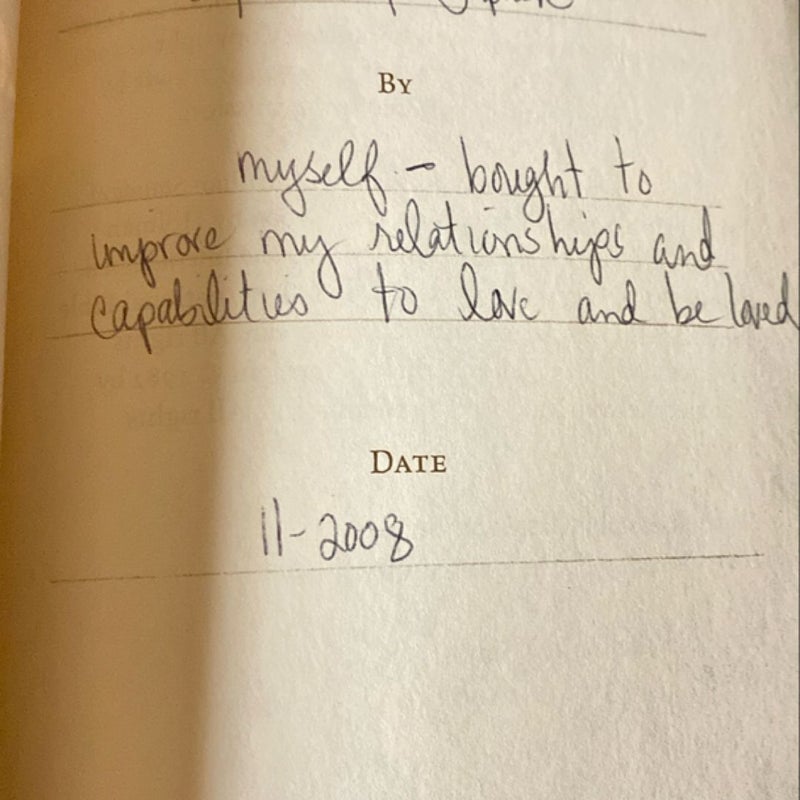 BY
myself - bought to
improve my relationships and
capabilities to love and be loved
DATE
11-2008